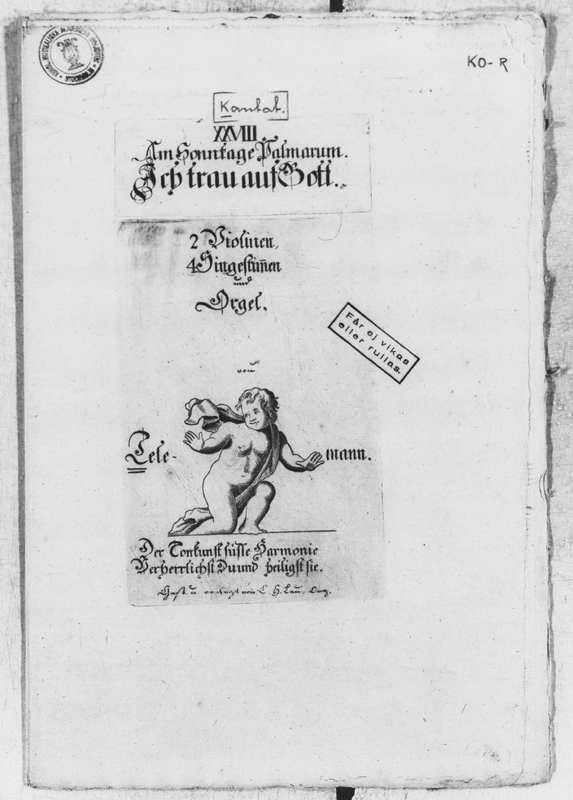 KO-R
Kantat.
XXVIII.
Am Sonntage Palmarum.
Ich trau auf Gott.
2 Violinen,
4 Singestim̅en
und
Orgel.
Får ej vikas
eller rullas.
von
Tele- mann.
Der Tonkunst süsse Harmonie
Verherrlichst Du und heiligst sie.
Gest. u verlegt von C. H. Lau,